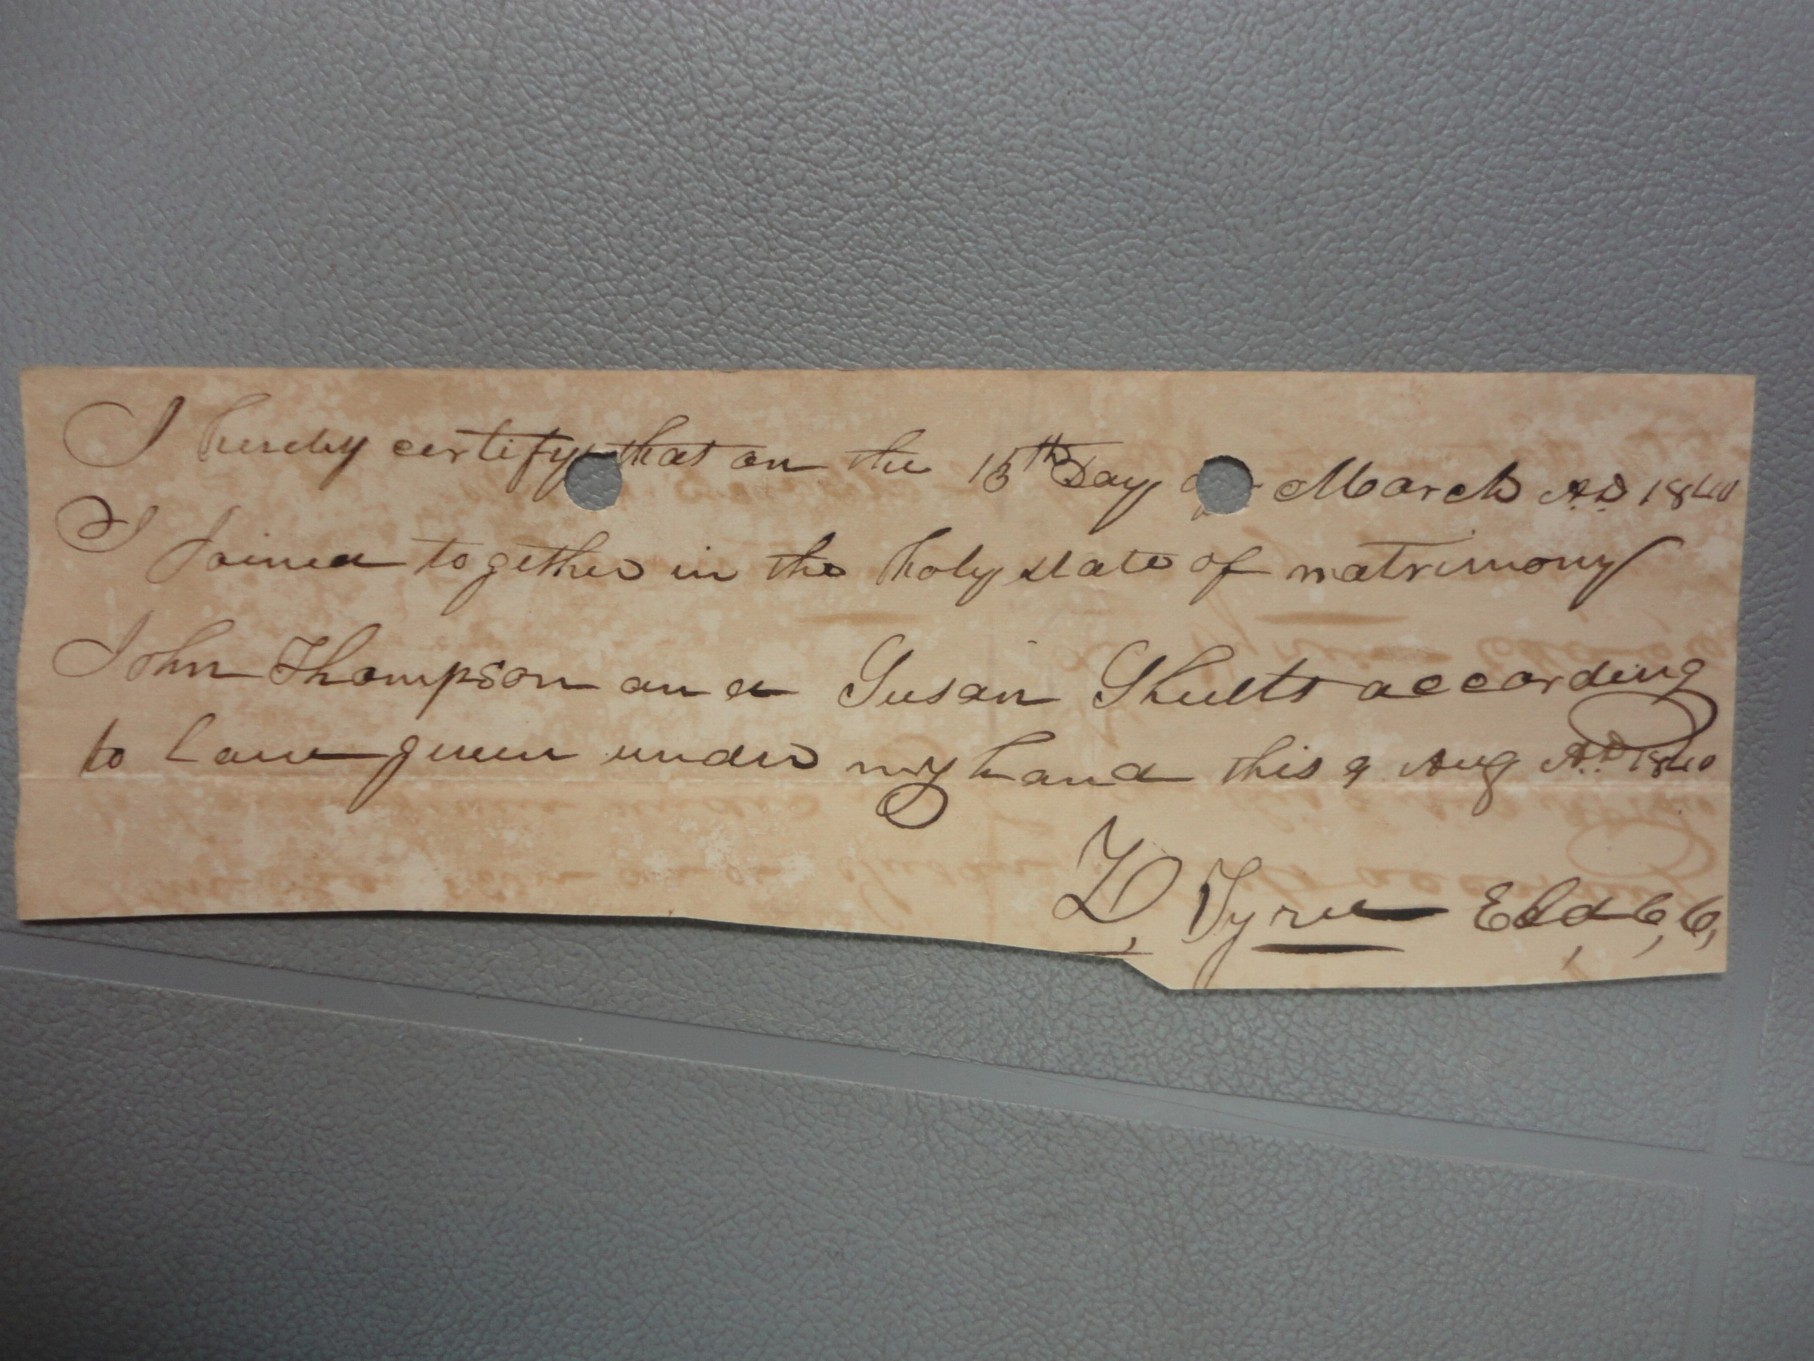 I hereby certify that on the 15th Day of March A.D. 1840
I Joined together in the holy state of matrimony
John Thompson and Susan Shults according
to Law given under my hand this 9 Aug A.D. 1840
Z, Tyree Eld, C, C,